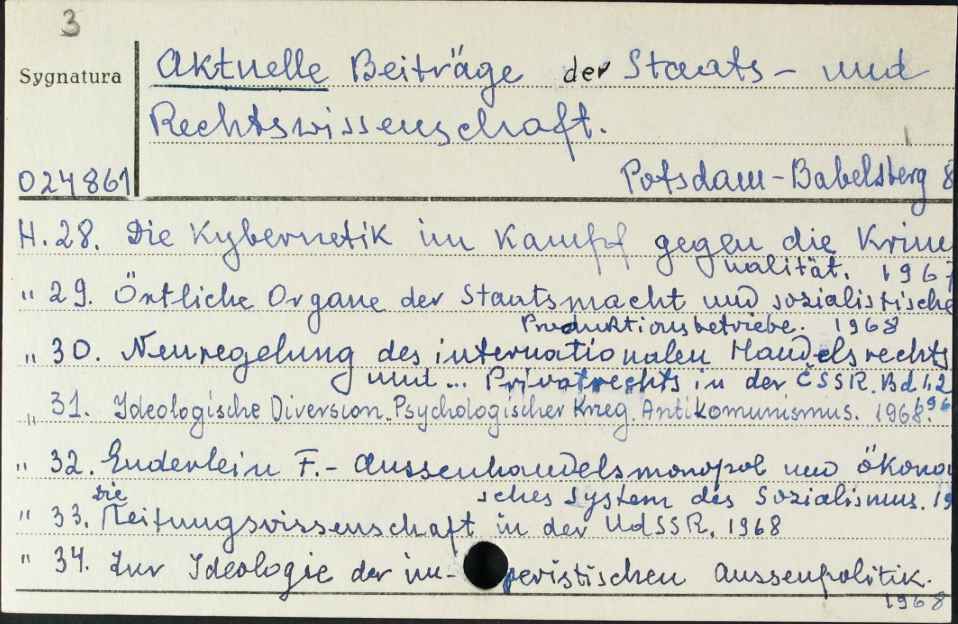 3
Sygnatura
Aktuelle Beiträge der Staats- und
Rechtswissenschaft.
024861
Potsdam-Babelsberg 8
H. 28. Die Kybernetik im Kampf gegen die Krimi
nalität. 1967
" 29. Örtliche Organe der Staatsmacht und sozialistische
Produktionsbetriebe. 1968
" 30. Neuregelung des internationalen Handelsrechts
und... Privatrechts in der ČSSR. Bd 1.2
196
" 31. Ideologische Diversion. Psychologischer Krieg. Antikomunismus. 1968.
" 32. Enderlein F.- Aussenhandelsmonopol und ökono
sches System des Sozialismus. 19
" 33. Die Leitungswissenschaft in der UdSSR. 1968
" 34. Zur Ideologie der im- peristischen Aussenpolitik.
1968